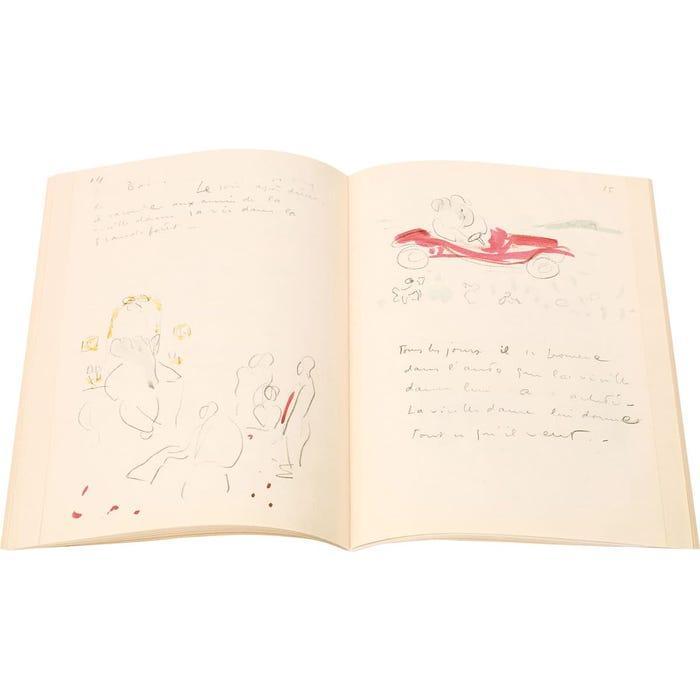 14
Le soir après dîner
il raconte aux amis de la
vieille dame sa vie dans la
grande forêt _
15
Tous les jours il se promene
dans l'auto que la vieille
dame lui a acheté _
La vieille dame lui donne
tout ce qu'il veut _